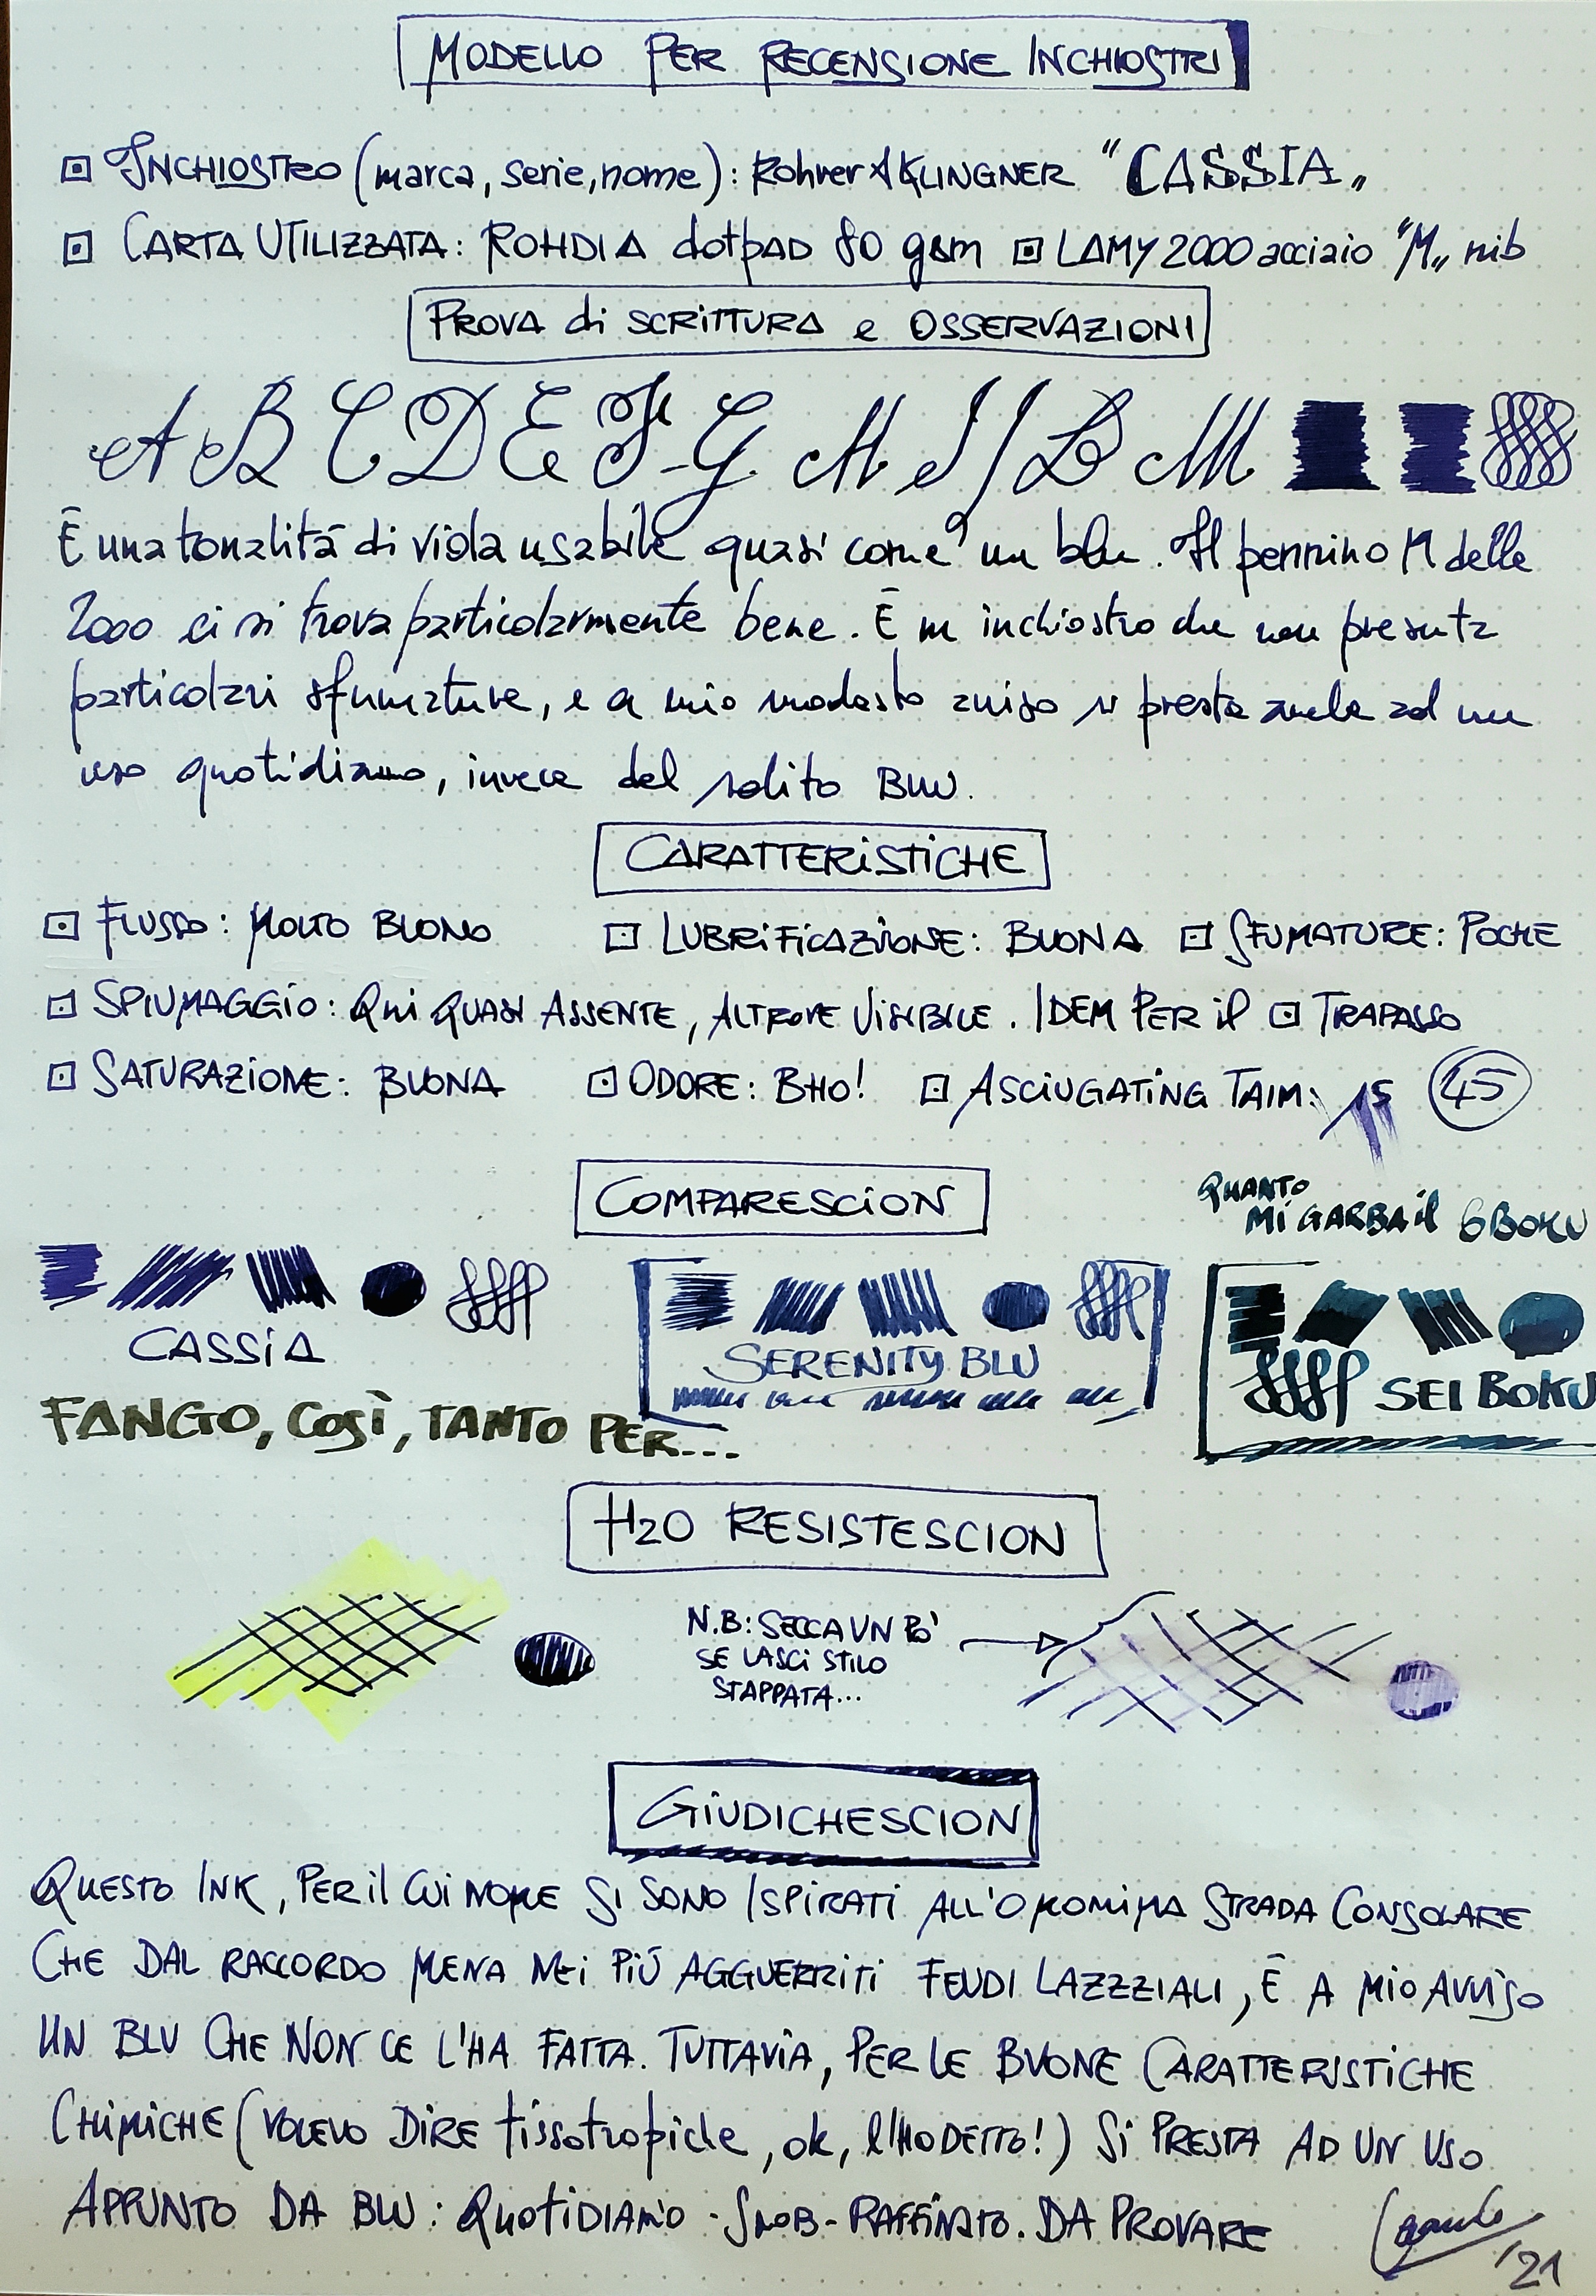 MODELLO PER RECENSIONE INCHIOSTRI
INCHIOSTRO (marca, serie, nome): Rohrer & KLINGNER "CASSIA"
CARTA UTILIZZATA: ROHDIA dotpAD 80 gsm LAMY 2000 acciaio "M" nib
PROVA di SCRITTURA e OSSERVAZIONI
A B C D E F G H I / L B M
È una tonalità di viola usabile quasi come un blu. Il pennino M delle
2000 ci si trova particolarmente bene. È un inchiostro che non presenta
particolari sfumature, e a mio modesto avviso si presta anche ad un
uso quotidiano, invece del solito BLU.
CARATTERISTICHE
FLUSSO: MOLTO BUONO LUBRIFICAZIONE: BUONA SFUMATURE: POCHE
SPIUMAGGIO: QUI QUASI ASSENTE, ALTROVE VISIBILE. IDEM PER il TRAPASSO
SATURAZIONE: BUONA ODORE: BHO! ASCIUGATING TAIM: 15 45
COMPARESCION
QUANTO
Mi GARBA il 6BOKU
CASSIA
SERENITY BLU
SEI BOKU
FANGO, COSÌ, TANTO PER...
H2O RESISTESCION
N.B: SECCA UN PO'
SE LASCI STILO
STAPPATA...
GIUDICHESCION
QUESTO INK, PER il CUI NOME SI SONO ISPIRATI ALL'OMONIMA STRADA CONSOLARE
CHE DAL RACCORDO MENA NEi PIÙ AGGUERRITI FEUDI LAZZZIALI, È A MIO AVVISO
UN BLU CHE NON CE L'HA FATTA. TUTTAVIA, PER LE BUONE CARATTERISTICHE
CHIMICHE (VOLEVO DIRE tissotropiche, ok, l'HO DETTO!) Si PRESTA AD UN USO
APPUNTO DA BLU: QUOTIDIANO - SNOB - RAFFINATO. DA PROVARE
'21